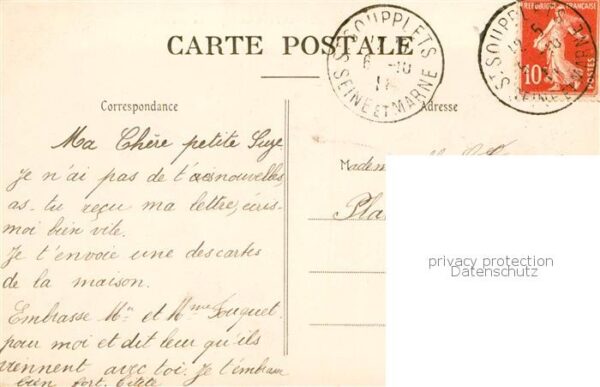 CARTE POSTALE
ST SOUPPLETS
6 -10
SEINE ET MARNE
ST SOUPPL
SEINE ET MARNE
REPUBLIQUE FRANÇAISE
10
POSTES
Correspondance
Adresse
Ma Chère petite Suze
Je n'ai pas de t nouvelles,
as-tu reçu ma lettre, écris-
moi bien vite.
Je t'envoie une des cartes
de la maison.
Embrasse Mr et Mme Fouquet
pour moi et dit leur qu'ils
viennent avec toi. Je t'embrasse
bien fort. Titite
Madem
Pla
privacy protection
Datenschutz